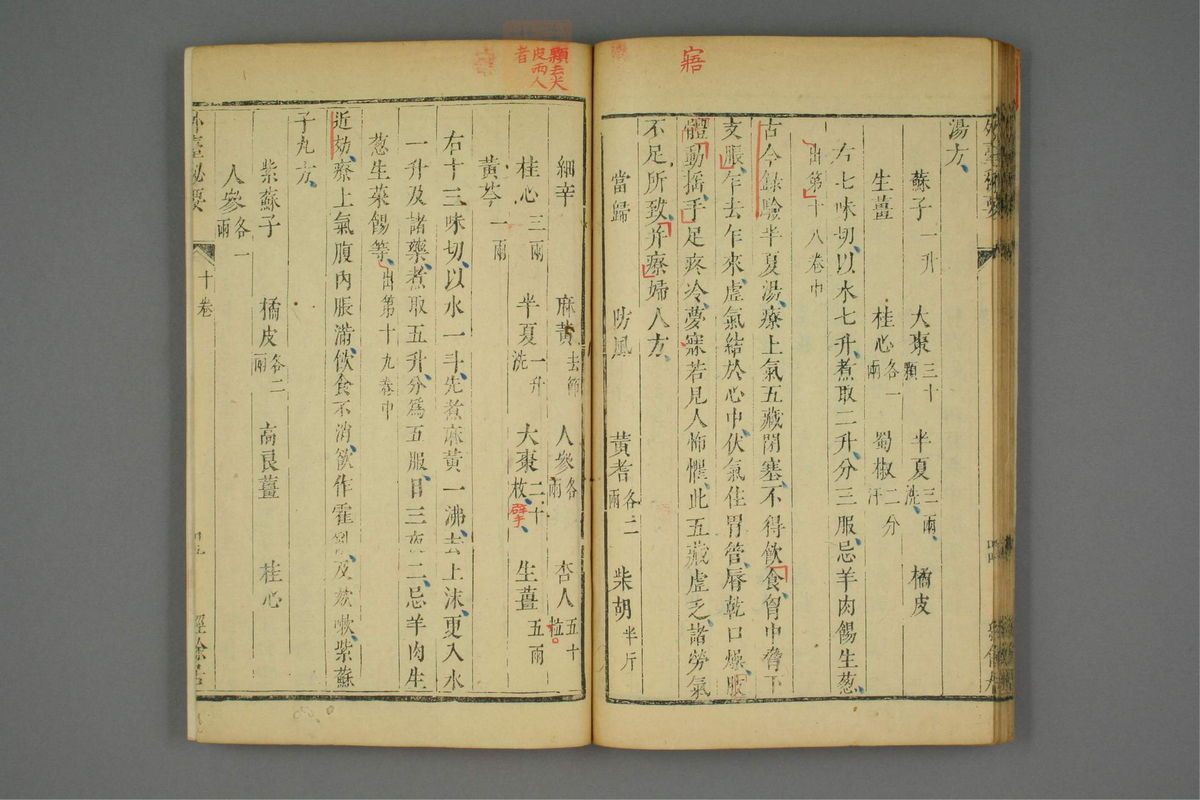 寤
湯方
蘇子一升 大棗三十顆 半夏三兩洗 橘皮
生薑 桂心各一兩 蜀椒二分汗
右七味切以水七升煮取二升分三服忌羊肉餳生葱
出第十八卷中
古今錄驗半夏湯療上氣五藏閉塞不得飲食胷中脅下
支脹乍去乍來虛氣結於心中伏氣住胃管脣乾口燥肢
體動搖手足疼冷夢寐若見人怖懼此五藏虛乏諸勞氣
不足所致并療婦人方
當歸 防風 黃耆各二兩 柴胡半斤
顆去尖
皮兩人
者
細辛 麻黃去節 人參各兩 杏人五十粒
桂心三兩 半夏一升洗 大棗二十枚擘 生薑五兩
黃芩一兩
右十三味切以水一斗先煮麻黃一沸去上沫更入水
一升及諸藥煮取五升分為五服日三夜二忌羊肉生
葱生菜餳等出第十九卷中
近効療上氣腹內脹滿飲食不消欲作霍亂及欬嗽紫蘇
子丸方
紫蘇子 橘皮各二兩 高良薑 桂心
人參各一兩
外臺秘要 十卷 四五 經餘居